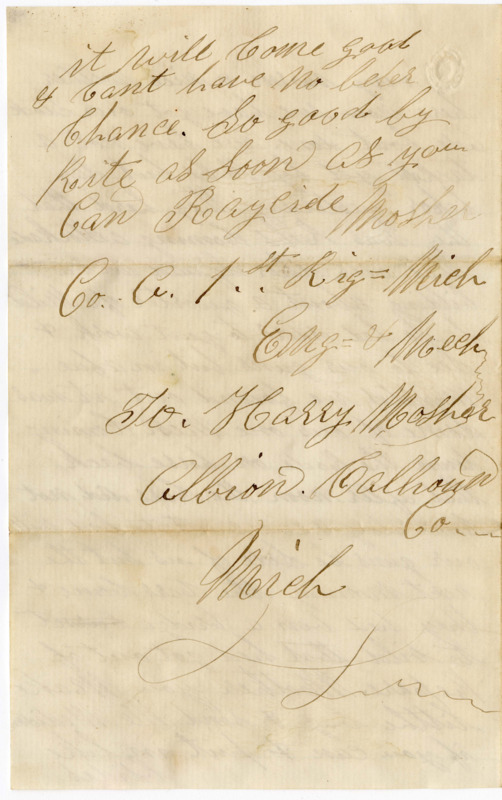 it will Come good
& Cant have no beter
Chance. So good by
Rite as Soon as you
Can Mosher
Co. A. 1st Rig= Mich
Eng= & Mech
To. Harry Mosher
Albion. Calhoun
Co
Mich